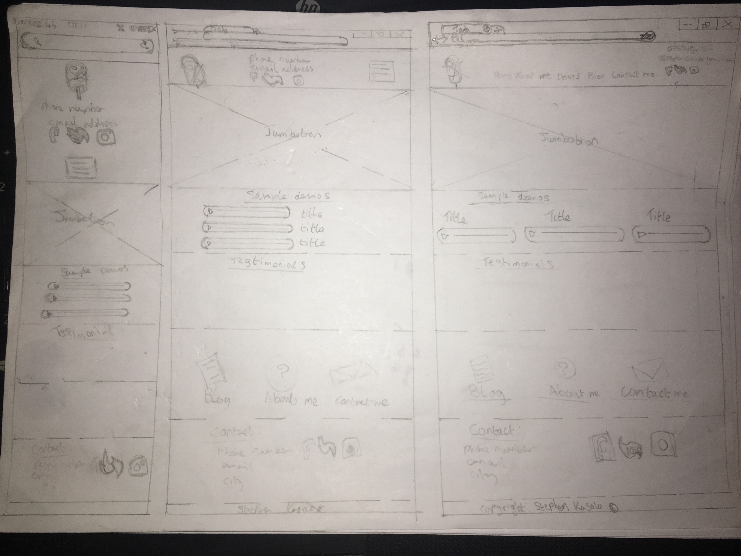 Phone number
email address
Jumbotron
Sample demos
Testimonial
Contact:
Phone number
email address
Jumbotron
Sample demos
title
title
title
Testimonials
Blog
About me
contact me
Contact:
Phone number
email
City
Home About me Demos Blog Contact me
Jumbotron
Sample Demos
Title
Title
Title
Testimonials
Blog
About me
Contact me
Contact:
Phone number
email
City
copyright Stephen Kasolo ©